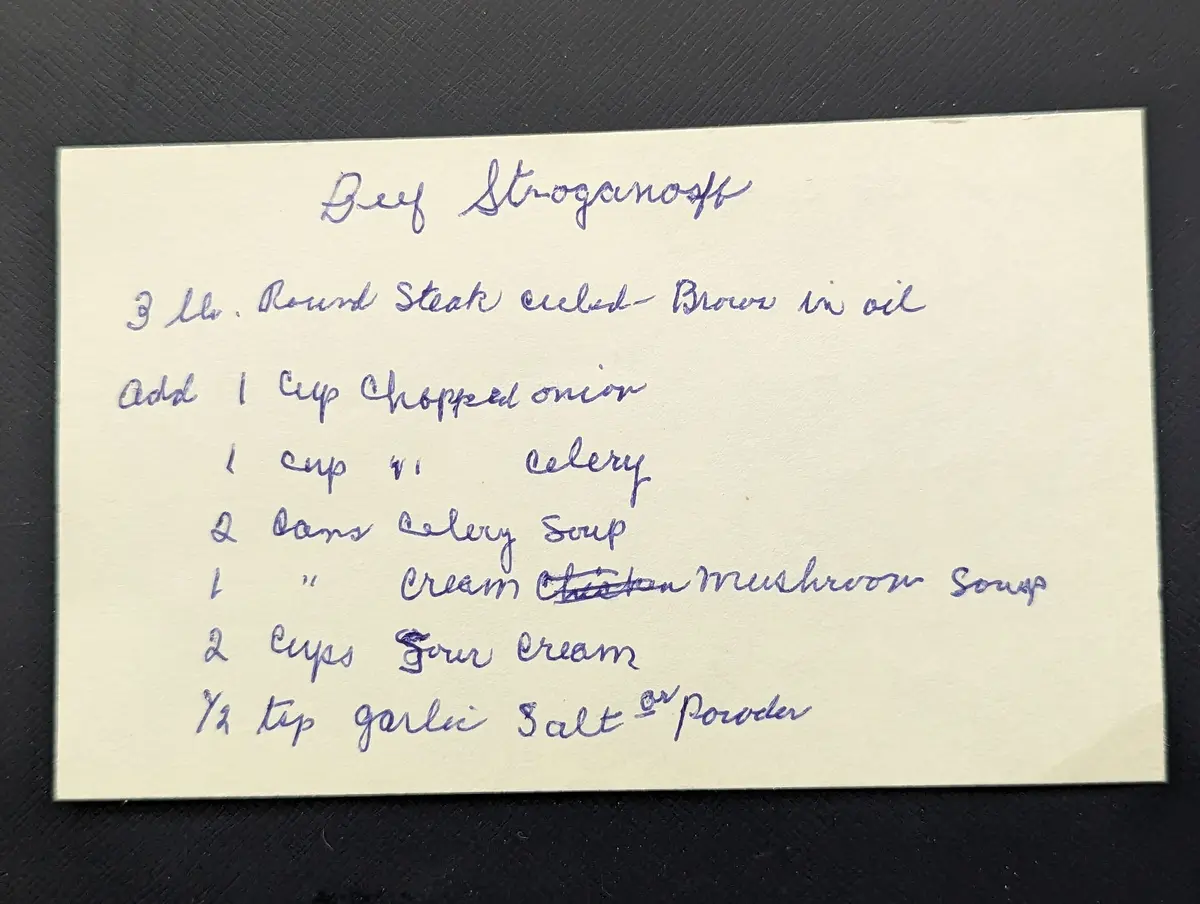 Beef Stroganoff
3 lb. Round Steak cubed - Brown in oil
Add 1 Cup Chopped onion
1 cup " Celery
2 Cans Celery Soup
1 " Cream Chicken Mushroom Soup
2 Cups Sour Cream
1/2 tsp garlic Salt or Powder